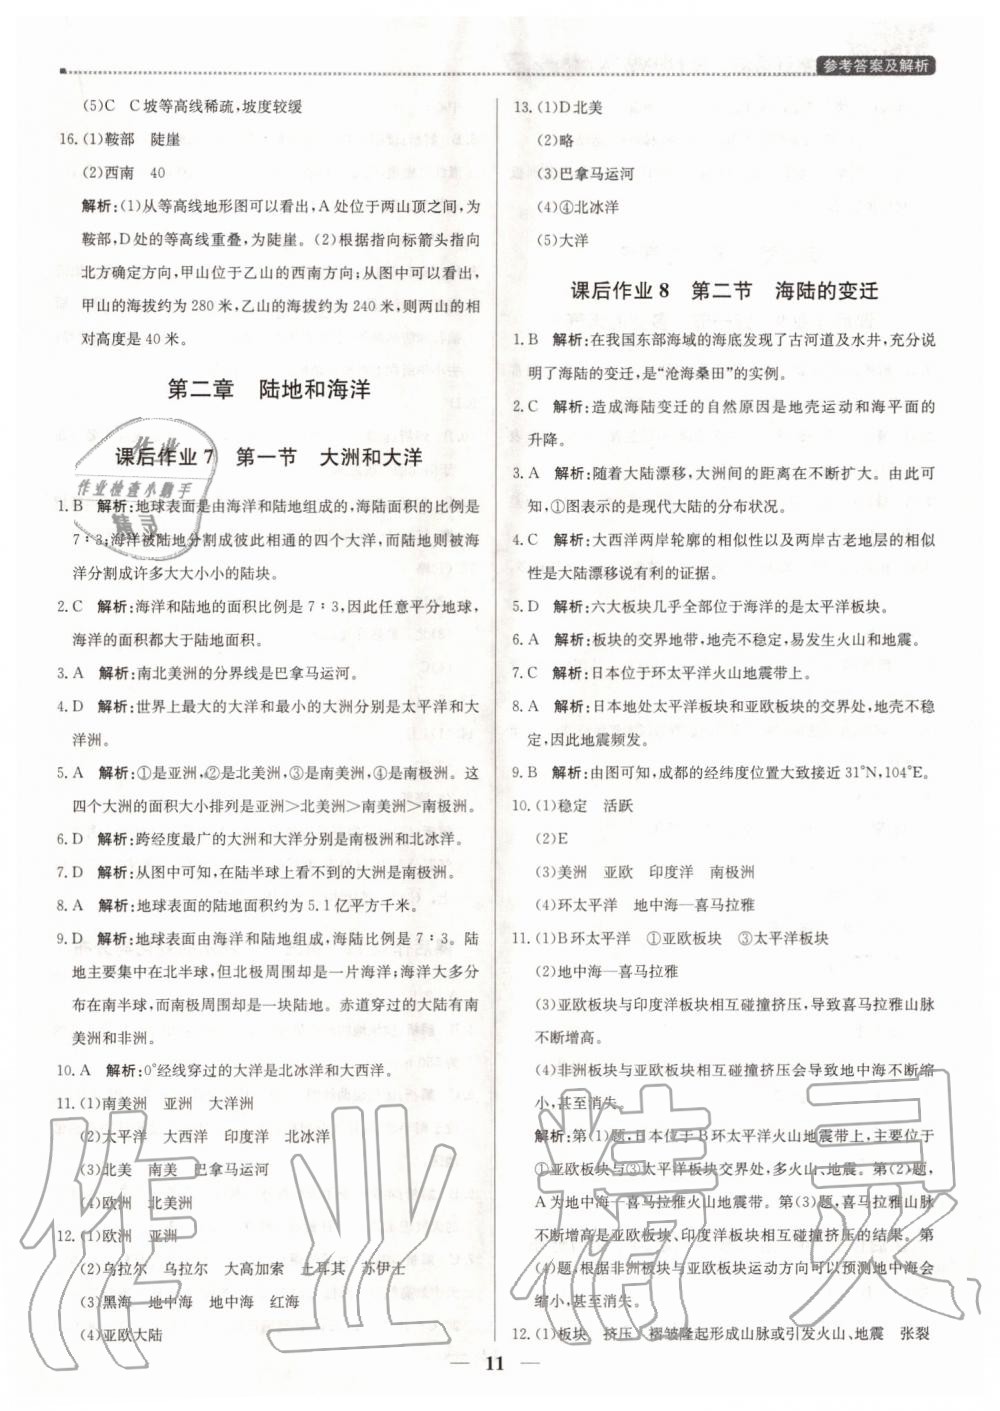 参考答案及解析
(5)C　C坡等高线稀疏,坡度较缓
16. (1)鞍部　陡崖
(2)西南　40
解析:(1)从等高线地形图可以看出,A处位于两山顶之间,为
鞍部,D处的等高线重叠,为陡崖。(2)根据指向标箭头指向
北方确定方向,甲山位于乙山的西南方向;从图中可以看出,
甲山的海拔约为280米,乙山的海拔约为240米,则两山的相
对高度是40米。
第二章　陆地和海洋
课后作业7　第一节　大洲和大洋
1. B　解析:地球表面是由海洋和陆地组成的,海陆面积的比例是
7∶3;海洋被陆地分割成彼此相通的四个大洋,而陆地则被海
洋分割成许多大大小小的陆块。
2. C　解析:海洋和陆地的面积比例是7∶3,因此任意平分地球,
海洋的面积都大于陆地面积。
3. A　解析:南北美洲的分界线是巴拿马运河。
4. D　解析:世界上最大的大洋和最小的大洲分别是太平洋和大
洋洲。
5. A　解析:①是亚洲,②是北美洲,③是南美洲,④是南极洲。这
四个大洲的面积大小排列是亚洲>北美洲>南美洲>南极洲。
6. D　解析:跨经度最广的大洲和大洋分别是南极洲和北冰洋。
7. D　解析:从图中可知,在陆半球上看不到的大洲是南极洲。
8. A　解析:地球表面的陆地面积约为5.1亿平方千米。
9. D　解析:地球表面由海洋和陆地组成,海陆比例是7∶3。陆
地主要集中在北半球,但北极周围却是一片海洋;海洋大多分
布在南半球,而南极周围却是一块陆地。赤道穿过的大陆有南
美洲和非洲。
10. A　解析:0°经线穿过的大洋是北冰洋和大西洋。
11. (1)南美洲　亚洲　大洋洲
(2)太平洋　大西洋　印度洋　北冰洋
(3)北美　南美　巴拿马运河
(4)欧洲　北美洲
12. (1)欧洲　亚洲
(2)乌拉尔　乌拉尔　大高加索　土耳其　苏伊士
(3)黑海　地中海　地中海　红海
(4)亚欧大陆
13. (1)D北美
(2)略
(3)巴拿马运河
(4)④北冰洋
(5)大洋
课后作业8　第二节　海陆的变迁
1. B　解析:在我国东部海域的海底发现了古河道及水井,充分说
明了海陆的变迁,是“沧海桑田”的实例。
2. C　解析:造成海陆变迁的自然原因是地壳运动和海平面的
升降。
3. A　解析:随着大陆漂移,大洲间的距离在不断扩大。由此可
知,①图表示的是现代大陆的分布状况。
4. C　解析:大西洋两岸轮廓的相似性以及两岸古老地层的相似
性是大陆漂移说有利的证据。
5. D　解析:六大板块几乎全部位于海洋的是太平洋板块。
6. A　解析:板块的交界地带,地壳不稳定,易发生火山和地震。
7. C　解析:日本位于环太平洋火山地震带上。
8. A　解析:日本地处太平洋板块和亚欧板块的交界处,地壳不稳
定,因此地震频发。
9. B　解析:由图可知,成都的经纬度位置大致接近31°N,104°E。
10. (1)稳定　活跃
(2)E
(3)美洲　亚欧　印度洋　南极洲
(4)环太平洋　地中海—喜马拉雅
11. (1)B环太平洋　①亚欧板块　③太平洋板块
(2)地中海—喜马拉雅
(3)亚欧板块与印度洋板块相互碰撞挤压,导致喜马拉雅山脉
不断增高。
(4)非洲板块与亚欧板块相互碰撞挤压会导致地中海不断缩
小,甚至消失。
解析:第(1)题,日本位于B环太平洋火山地震带上,主要位于
①亚欧板块与③太平洋板块交界处,多火山、地震。第(2)题,
A为地中海—喜马拉雅火山地震带。第(3)题,喜马拉雅山脉
不断增高是亚欧板块与印度洋板块相互碰撞挤压的结果。第
(4)题,根据非洲板块与亚欧板块运动方向可以预测地中海会
缩小,甚至消失。
12. (1)板块　挤压　褶皱隆起形成山脉或引发火山、地震　张裂
11
作业
作业检查小助手
精灵
作业精灵